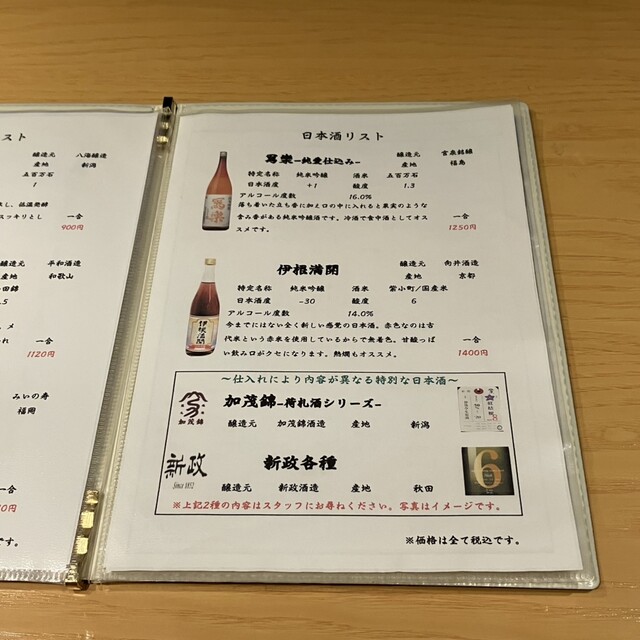 リスト
醸造元 八海醸造
産地 新潟
五百万石
1
し、低温発酵
スッキリとし
一合
900円
醸造元 平和酒造
産地 和歌山
田錦
.5
、メ
れ
一合
1120円
みいの寿
福岡
一合
0円
です。
日本酒リスト
寫樂-純愛仕込み-
醸造元 宮泉銘醸
産地 福島
特定名称 純米吟醸 酒米 五百万石
日本酒度 +1 酸度 1.3
アルコール度数 16.0%
落ち着いた立ち香に加え口の中に入れると果実のような
含み香がある純米吟醸酒です。冷酒で食中酒としてオス
スメです。
一合
1250円
寫樂
伊根満開
醸造元 向井酒造
産地 京都
特定名称 純米吟醸 酒米 紫小町/国産米
日本酒度 -30 酸度 6
アルコール度数 14.0%
今までにはない全く新しい感覚の日本酒。赤色なのは古
代米という赤米を使用しているからで無着色。甘酸っぱ
い飲み口がクセになります。熱燗もオススメ。
一合
1400円
伊根満開
～仕入れにより内容が異なる特別な日本酒～
加茂錦
加茂錦-荷札酒シリーズ-
醸造元 加茂錦酒造 産地 新潟
新政
Since 1852
新政各種
醸造元 新政酒造 産地 秋田
6
※上記2種の内容はスタッフにお尋ねください。写真はイメージです。
※価格は全て税込です。